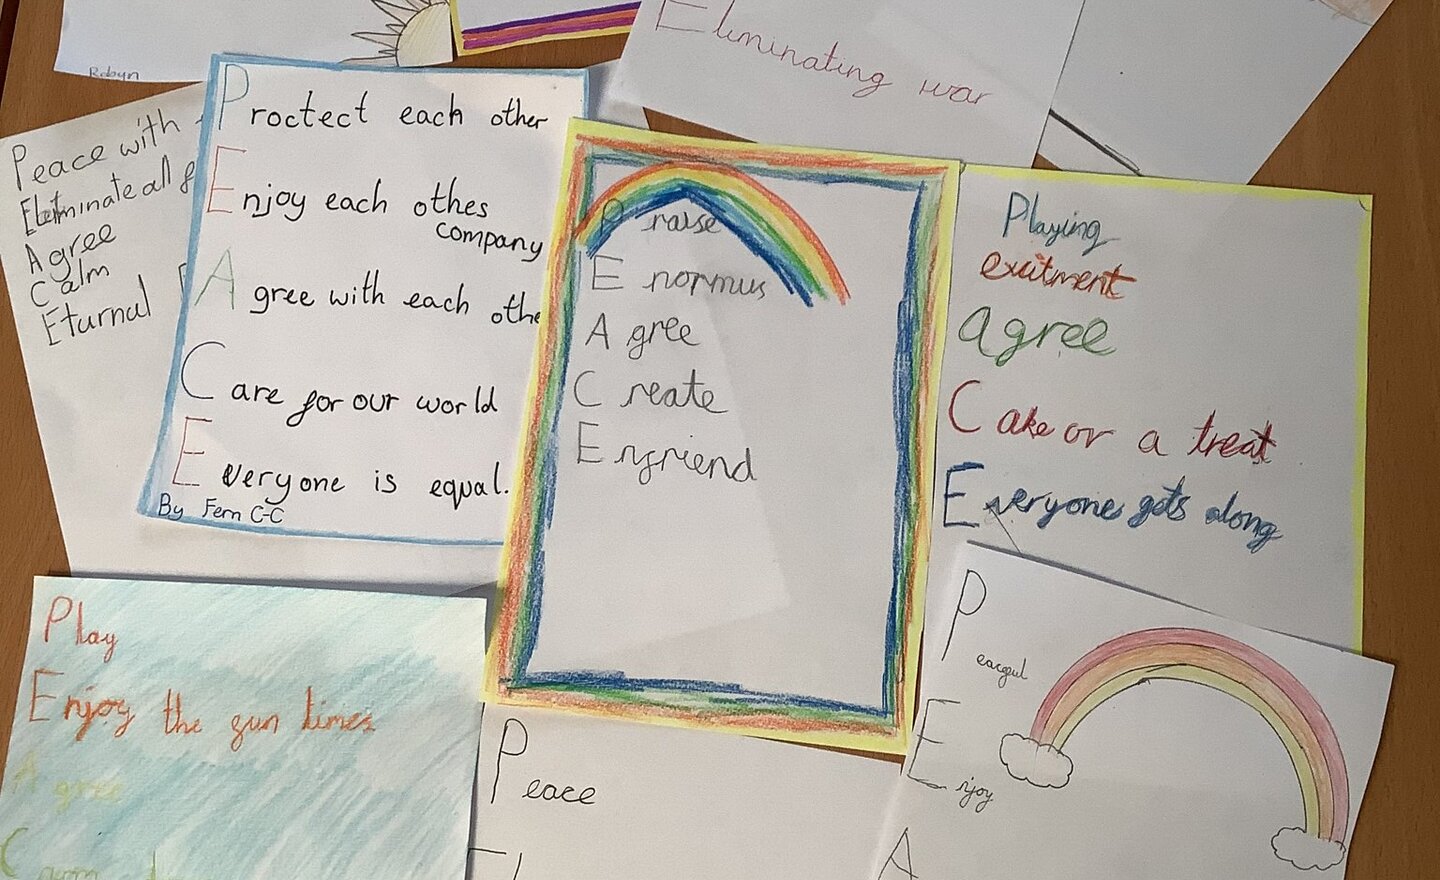 Robyn
Eliminating war
Peace with
Eliminate all
Agree
Calm
Eturnal
Proctect each other
Enjoy each othes
company
Agree with each othe
Care for our world
Everyone is equal.
By Fern C-C
Praise
Enormus
Agree
Create
Enfriend
Playing
excitment
agree
Cake or a treat
Everyone gets along
Play
Enjoy the fun times
Agree
Peace
Peaceful
Enjoy
A